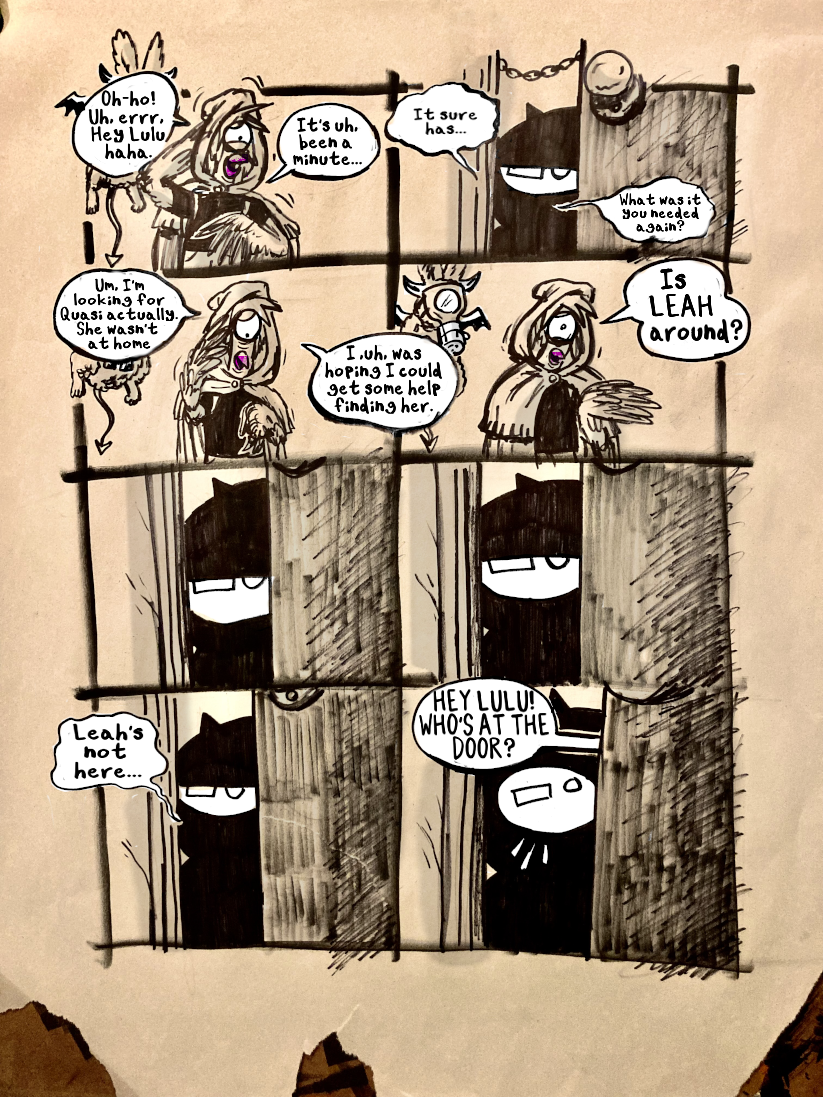 Oh-ho!
Uh, errr,
Hey Lulu,
haha.
It's uh,
been a
minute...
It sure
has...
What was it
you needed
again?
Um, I'm
looking for
Quasi actually.
She wasn't
at home
I ,uh, was
hoping I could
get some help
finding her.
Is
LEAH
around?
Leah's
not
here...
HEY LULU!
WHO'S AT THE
DOOR?